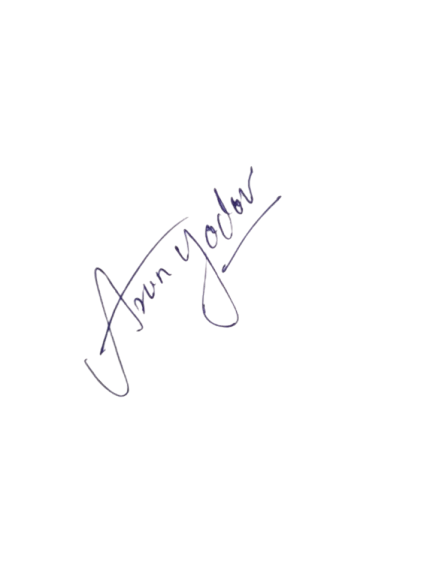 Arun Yadav